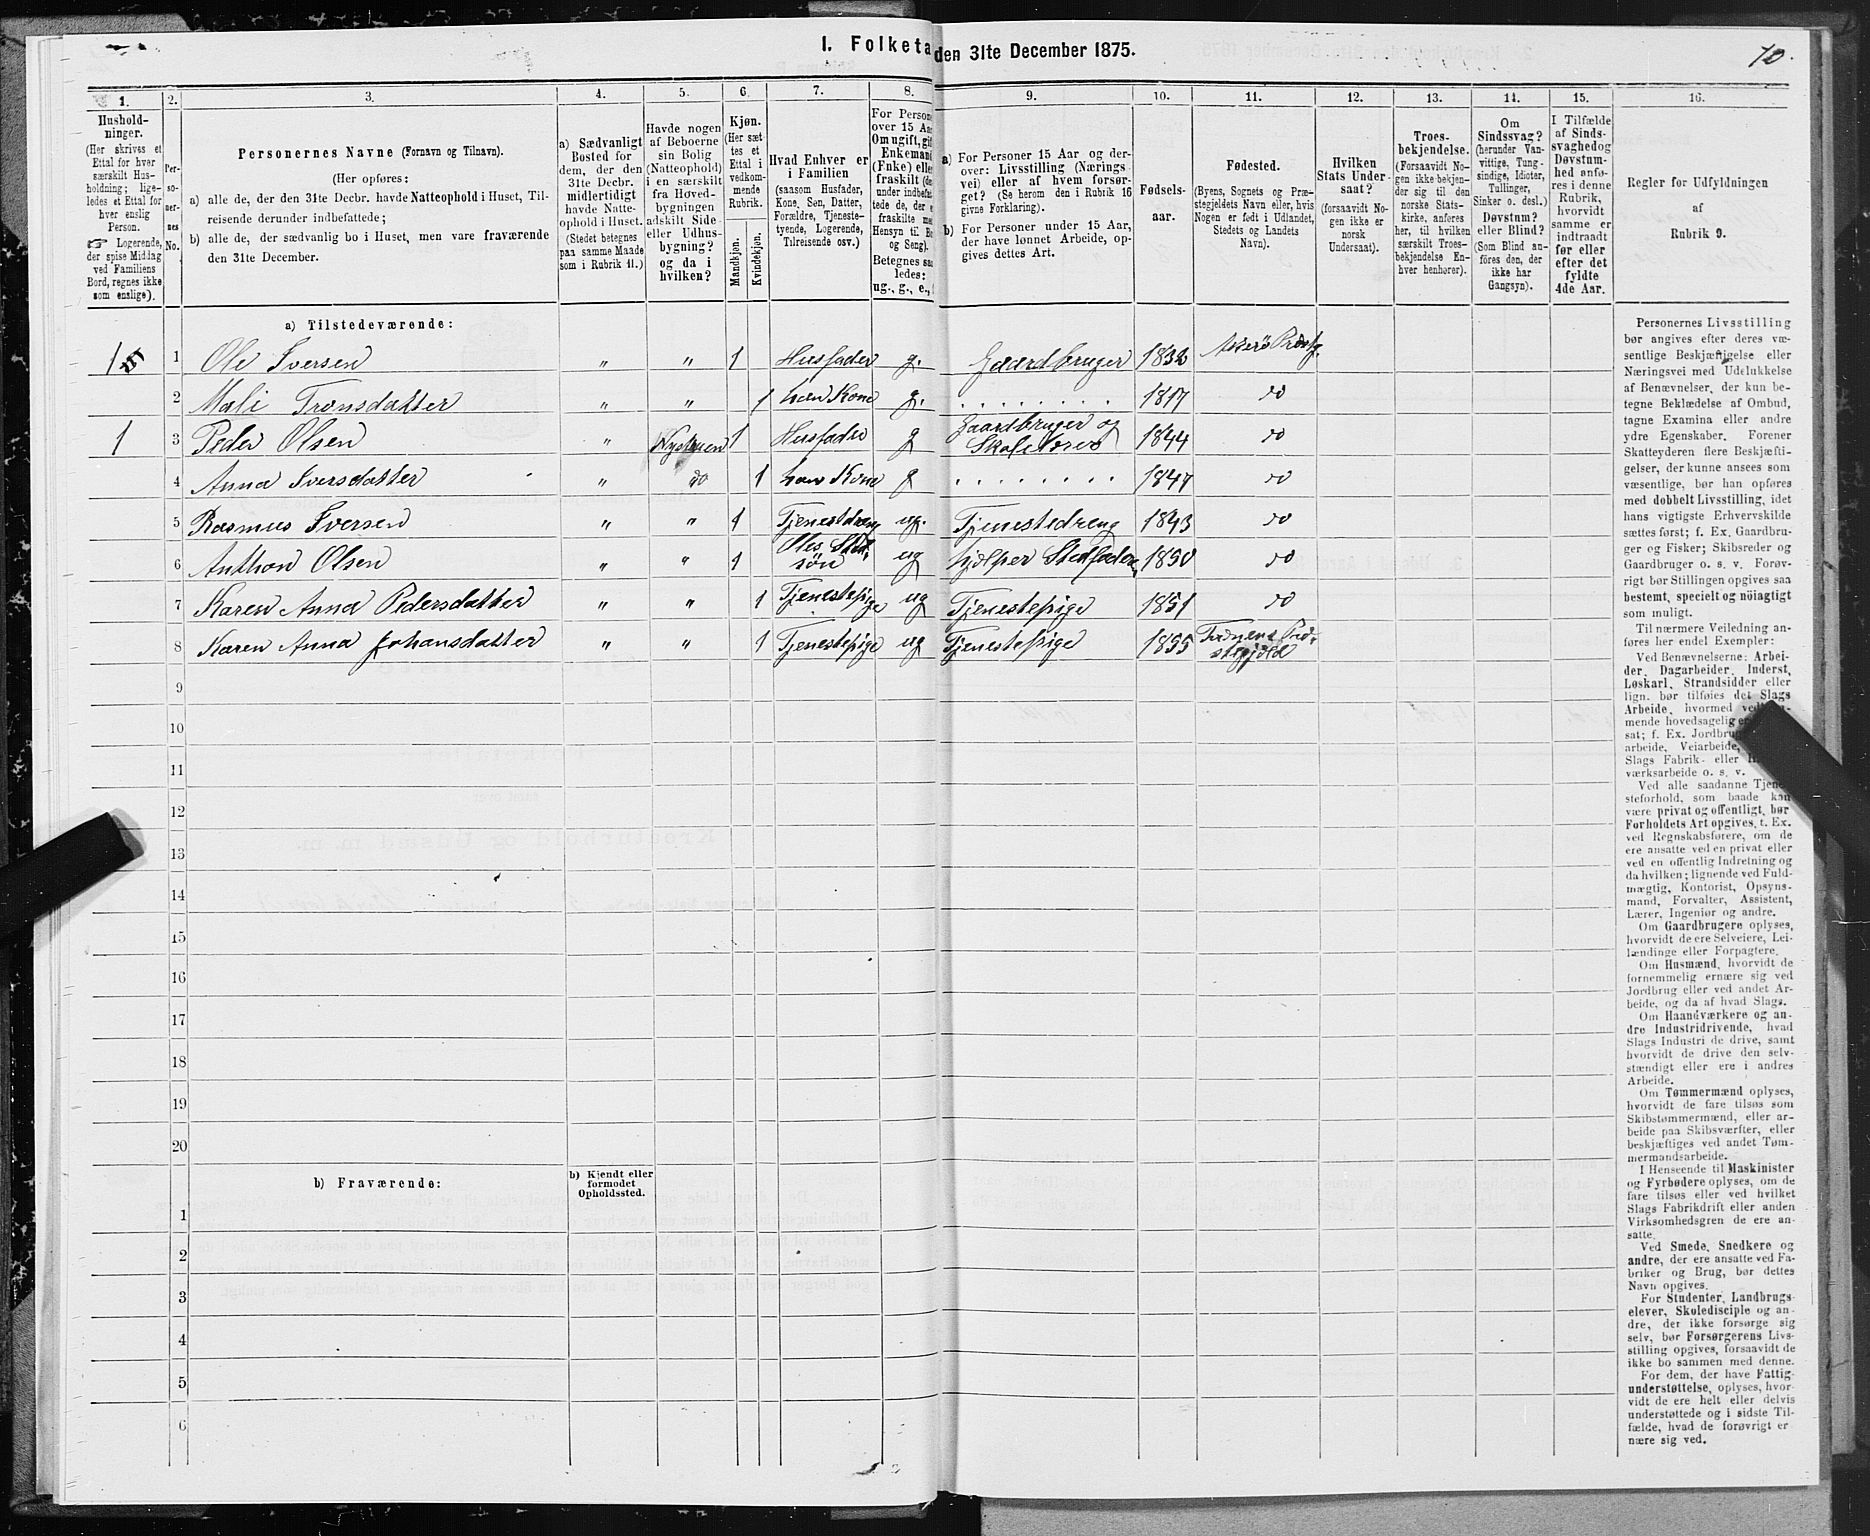 I. Folketa
den 31te December 1875.
10.
1.
Hushold-
ninger.
(Her skrives et
Ettal for hver
særskilt Hus-
holdning; lige-
ledes et Ettal for
hver enslig
Person.
☞ Logerende,
der spise Middag
ved Familiens
Bord, regnes ikke
som enslige).
2.
Per-
so-
ner-
nes
No.
3.
Personernes Navne (Fornavn og Tilnavn).
(Her opføres:
a) alle de, der den 31te Decbr. havde Natteophold i Huset, Til-
reisende derunder indbefattede;
b) alle de, der sædvanlig bo i Huset, men vare fraværende
den 31te December.
4.
a) Sædvanligt
Bosted for
dem, der den
31te Decbr.
midlertidigt
havde Natte-
ophold i Huset.
(Stedet betegnes
paa samme Maade
som i Rubrik 11.)
5.
Havde nogen
af Beboerne
sin Bolig
(Natteophold)
i en særskilt
fra Hoved-
bygningen
adskilt Side-
eller Udhus-
bygning?
og da i
hvilken?
6.
Kjøn.
(Her sæt-
tes et
Ettal i
vedkom-
mende
Rubrik.
Mandkjøn.
Kvindekjøn.
7.
Hvad Enhver er
i Familien
(saasom Husfader,
Kone, Søn, Datter,
Forældre, Tjeneste-
tyende, Logerende,
Tilreisende osv.)
8.
For Persone
over 15 Aa
Om ugift, gif
Enkemand
(Enke) elle
fraskilt (de
under indbefat
tede de, der e
fraskilte me
Hensyn til Bo
og Seng).
Betegnes saa
ledes:
ug., g., e.,
9.
a) For Personer 15 Aar og der-
over: Livsstilling (Nærings
vei) eller af hvem forsør-
get? (Se herom den i Rubrik 16
givne Forklaring).
b) For Personer under 15 Aar,
der have lønnet Arbeide, op-
gives dettes Art.
10.
Fødsels-
aar.
11.
Fødested.
(Byens, Sognets og Præ-
stegjeldets Navn eller, hvis
Nogen er født i Udlandet,
Stedets og Landets
Navn).
12.
Hvilken
Stats Under-
saat?
(forsaavidt No-
gen ikke er
norsk
Undersaat).
13.
Troes-
bekjendelse.
(Forsaavidt No-
gen ikke bekjen-
der sig til den
norske Stats-
kirke, anføres
her, til hvilken
særskilt Troes-
bekjendelse En-
hver henhører).
14.
Om
Sindssvag?
(herunder Van-
vittige, Tung-
sindige, Idioter,
Tullinger,
Sinker o. desl.)
Døvstum?
eller Blind?
(Som Blind an-
føres den, der
ikke har
Gangsyn).
15.
I Tilfælde
af Sinds-
svaghed og
Døvstum-
hed anfø-
res i denne
Rubrik,
hvorvidt
samme er
indtraadt
før eller
efter det
fyldte
4de Aar.
16.
Regler for Udfyldningen
af
Rubrik 9.
a) Tilstedeværende:
1 1 Ole Iversen " " 1 Husfader g. Gaardbruger 1832 Præstg.
2 Mali Tronsdatter " " 1 hans Kone g. . . . . . . . . 1817 do
1 3 Peder Olsen " Nystuen 1 Husfader g Gaardbruger og
Skolelærer 1844 do
4 Anna Iversdatter " do 1 hans Kone g . . . . . . . . 1847 do
5 Rasmus Iversen " " 1 Tjenestdreng ug. Tjenestedreng 1843 do
6 Anthon Olsen " " 1 Oles Sted-
søn ug hjælper Stedfaderen 1850 do
7 Karen Anna Pedersdatter " " 1 Tjenestepige ug Tjenestepige 1851 do
8 Karen Anna Johansdatter " " 1 Tjenestepige ug Tjenestepige 1855 Præ-
stegjeld
9
10
11
12
13
14
15
16
17
18
19
20
b) Fraværende:
b) Kjendt eller
formodet
Opholdssted.
1
2
3
4
5
6
Personernes Livsstilling
bør angives efter deres væ-
sentlige Beskjæftigelse eller
Næringsvei med Udelukkelse
af Benævnelser, der kun be-
tegne Beklædelse af Ombud,
tagne Examina eller andre
ydre Egenskaber. Forener
Skatteyderen flere Beskjæfti-
gelser, der kunne ansees som
væsentlige, bør han opføres
med dobbelt Livsstilling, idet
hans vigtigste Erhvervskilde
sættes først; f. Ex. Gaardbru-
ger og Fisker; Skibsreder og
Gaardbruger o. s. v. Forøv-
rigt bør Stillingen opgives saa
bestemt, specielt og nöiagtigt
som muligt.
Til nærmere Veiledning an-
føres her endel Exempler:
Ved Benævnelserne: Arbei-
der, Dagarbeider, Inderst,
Løskarl, Strandsidder eller
lign. bør tilføies det Slags
Arbeide, hvormed ved
mende hovedsagelig er
sat; f. Ex. Jordbru
arbeide, Veiarbeide,
Slags Fabrik- eller
værksarbeide o. s. v.
Ved alle saadanne Tjene
steforhold, som baade kan
være privat og offentligt, bør
Forholdets Art opgives, t. Ex.
ved Regnskabsførere, om de
ere ansatte ved en privat eller
ved en offentlig Indretning og
da hvilken; lignende ved Fuld-
mægtig, Kontorist, Opsyns-
mand, Forvalter, Assistent,
Lærer, Ingeniør og andre.
Om Gaardbrugere oplyses,
hvorvidt de ere Selveiere, Lei-
lændinge eller Forpagtere.
Om Husmænd, hvorvidt de
fornemmelig ernære sig ved
Jordbrug eller ved andet Ar-
beide, og da af hvad Slags.
Om Haandværkere og an-
dre Industridrivende, hvad
Slags Industri de drive, samt
hvorvidt de drive den selv-
stændigt eller ere i andres
Arbeide.
Om Tømmermænd oplyses,
hvorvidt de fare tilsøs som
Skibstømmermænd, eller ar-
beide paa Skibsværfter, eller
beskjæftiges ved andet Tøm-
mermandsarbeide.
I Henseende til Maskinister
og Fyrbødere oplyses, om de
fare tilsøs eller ved hvilket
Slags Fabrikdrift eller anden
Virksomhedsgren de ere an-
satte.
Ved Smede, Snedkere og
andre, der ere ansatte ved Fa-
briker og Brug, bør dettes
Navn opgives.
For Studenter, Landbrugs-
elever, Skoledisciple og an-
dre, der ikke forsørge sig
selv, bør Forsørgerens Livs-
stilling opgives, forsaavidt de
ikke bo sammen med denne.
For dem, der have Fattig-
understøttelse, oplyses, hvor-
vidt de ere helt eller delvis
understøttede og i sidste Til-
fælde, hvad de forøvrigt er-
nære sig ved.